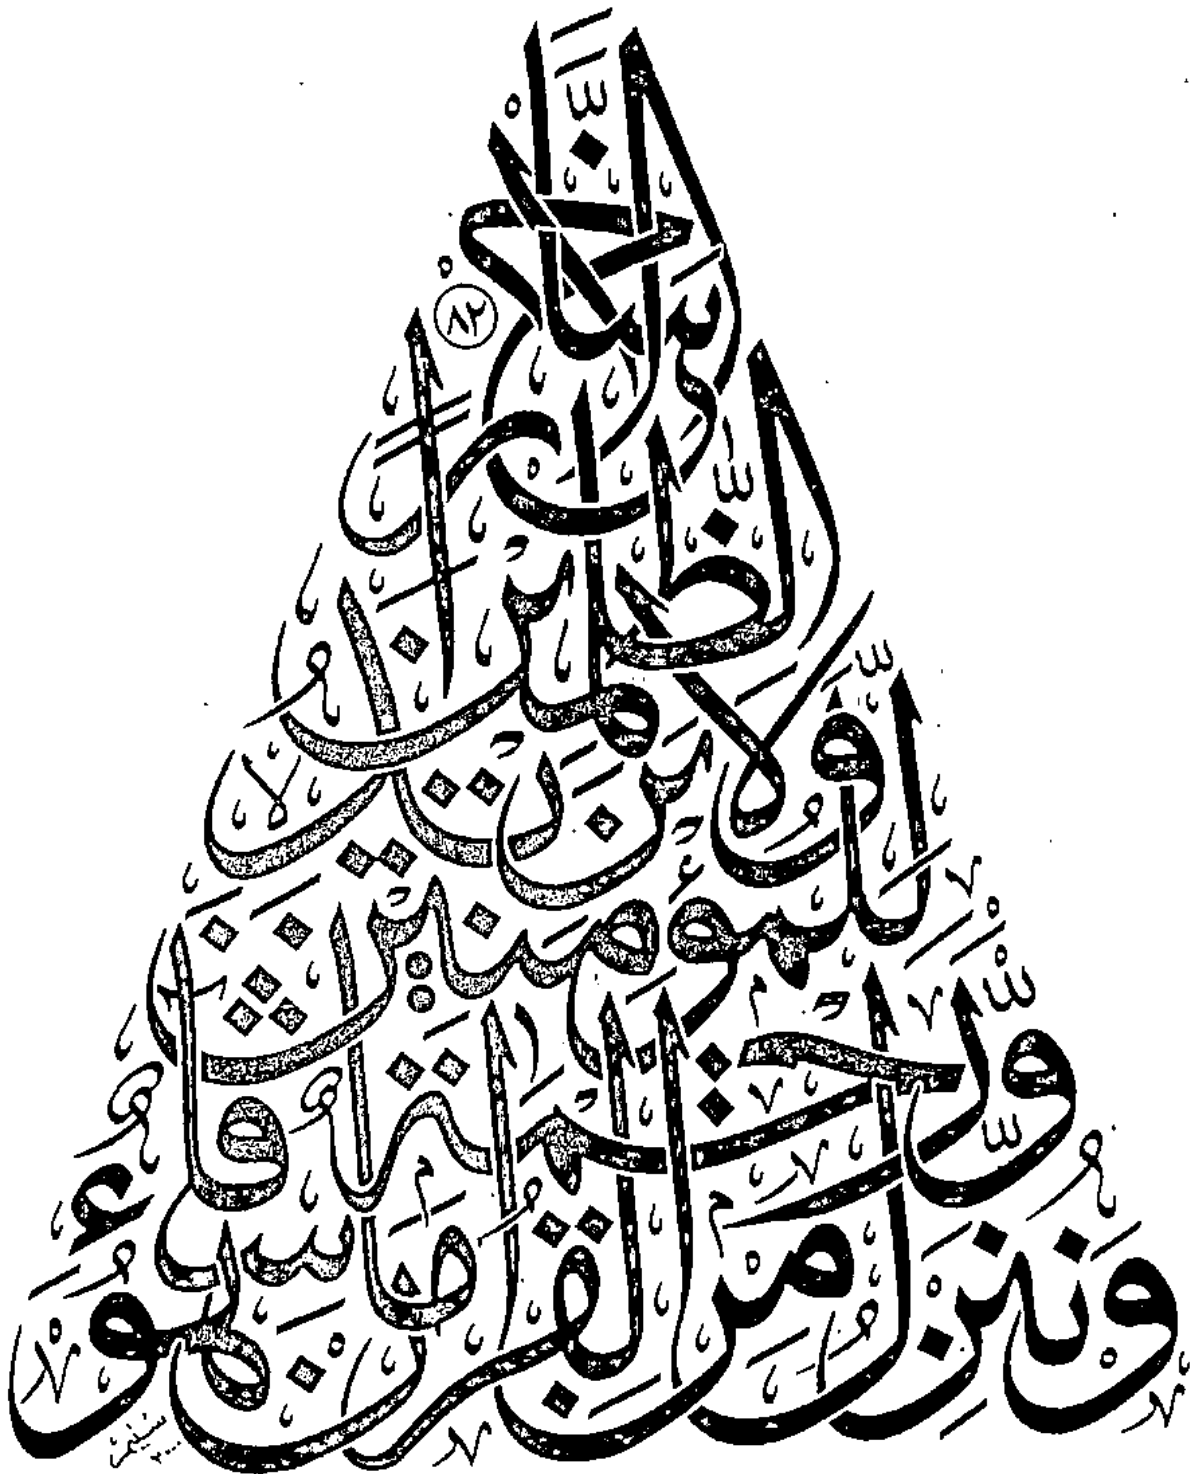 وَنُنَزِّلُ مِنَ الْقُرْآنِ مَا هُوَ شِفَاءٌ
وَّرَحْمَةٌ
لِّلْمُؤْمِنِينَ
وَلَا يَزِيدُ
الظّٰلِمِينَ
إِلَّا خَسَارًا ٨٢